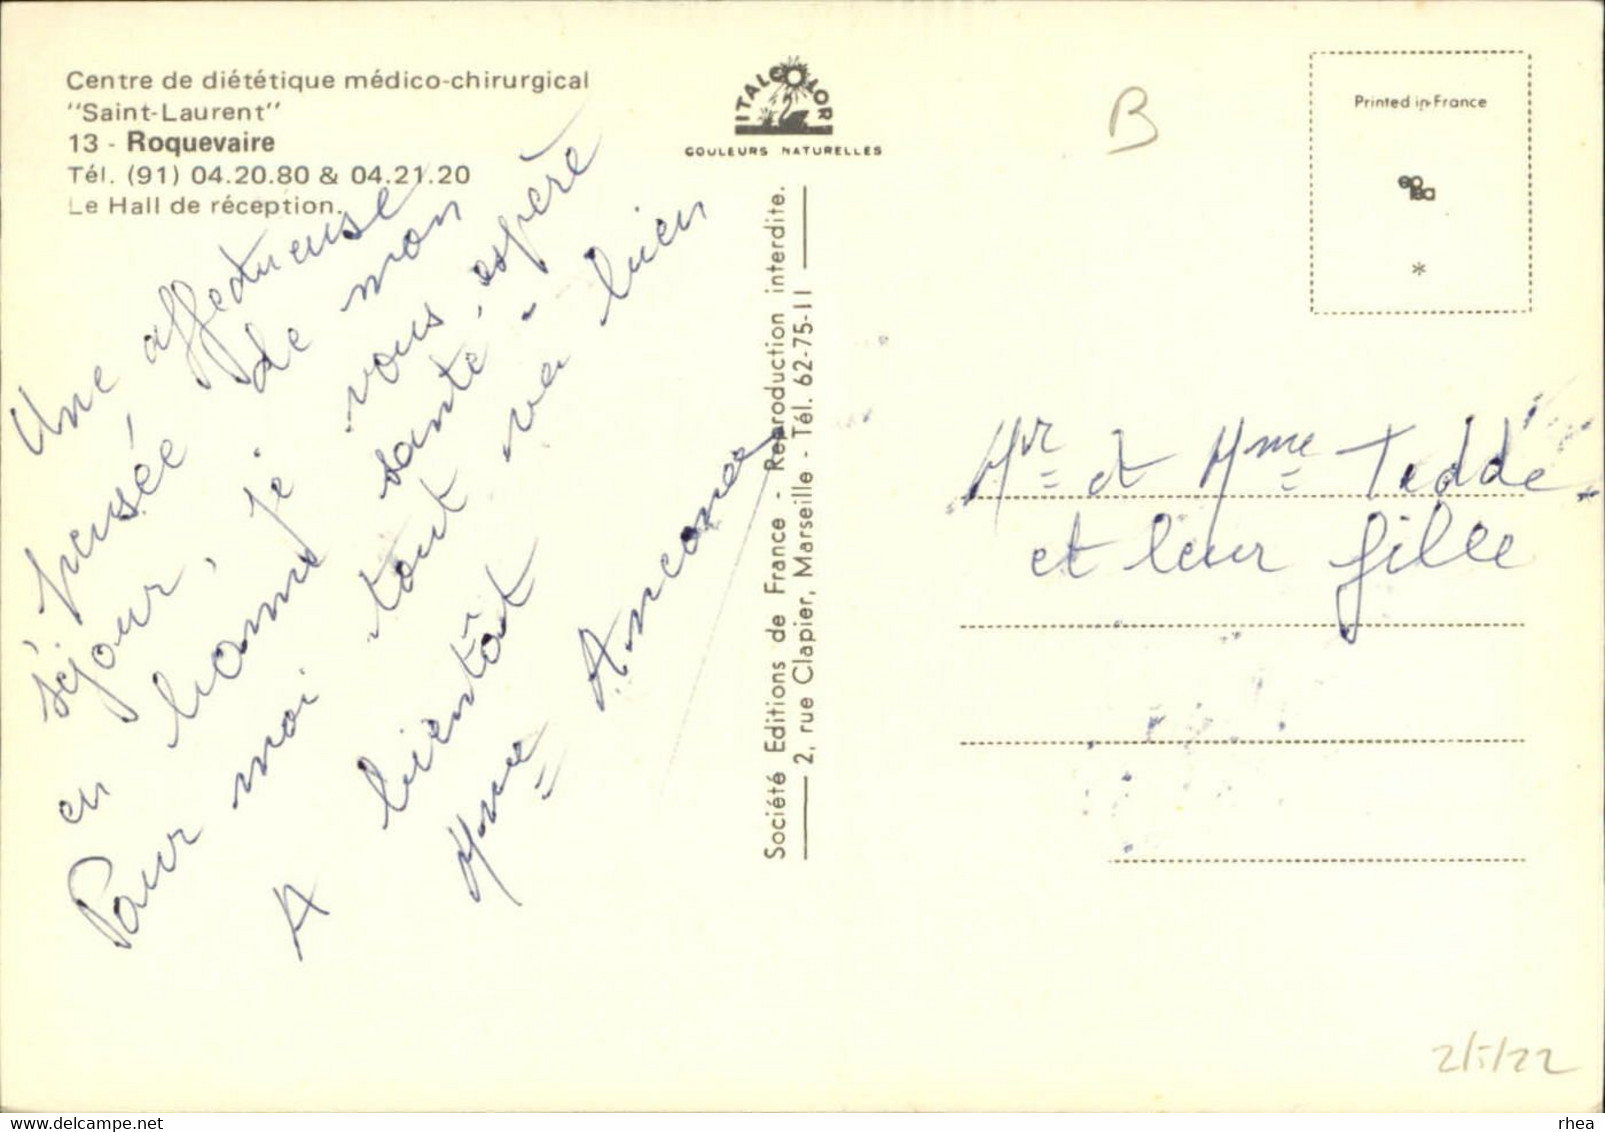 Centre de diététique médico-chirurgical
"Saint-Laurent"
13 - Roquevaire
Tél. (91) 04.20.80 & 04.21.20
Le Hall de réception.
Une affectueuse
pensée de mon
séjour, je vous, espère
en bonne santé -
Pour moi tout va bien
A bientôt
Mme Ancona
ITALCOLOR
COULEURS NATURELLES
Société Editions de France - Reproduction interdite.
2, rue Clapier, Marseille - Tél. 62-75-11
B
Printed in France
*
Mr et Mme Teddé
et leur fille
2/5/22
www.delcampe.net
rhea